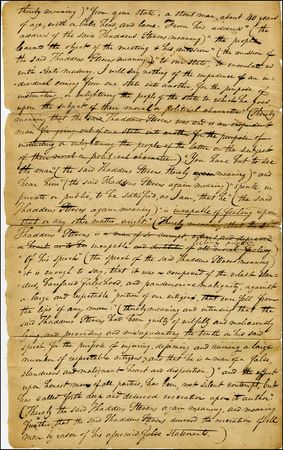 thereby meaning) "From your state, a stout man, about 40 years
of age, with a bald head and lame. From his address" (the
address of the said Thaddeus Stevens meaning) "the people
learned the object of the meeting & his mission" (the mission of
the said Thaddeus Stevens meaning) "to our state, to inoculate us
with Anti masonry. I will say nothing of the impudence of an in-
dividual coming from one state into another for the purpose of
instructing or enlightening the people of the state to which he goes
upon the subject of their moral or political character" (thereby
meaning that the said Thaddeus Stevens was and is an impudent
man for going out of one state into another for the purpose of
instructing or enlightening the people of the latter on the subject
of their moral or political character.) "You have but to see
the man" (the said Thaddeus Stevens thereby again meaning) "and
hear him" (the said Thaddeus Stevens again meaning) "speak, in
private or public, to be satisfied, as I am, that he" (the said
Thaddeus Stevens again meaning) "is incapable of feeling upon
that or any other matter aught" (thereby meaning that the said
Thaddeus Stevens is a man of so corrupt
heart as to be incapable of all moral feeling)
"Of his speech" (the speech of the said Thaddeus Stevens meaning)
"it is enough to say, that it was a compound of the vilest slan-
ders, barefaced falsehoods, and pandemonian malignity, against
a large and respectable portion of our citizens, that ever fell from
the lips of any man; (thereby meaning and intending that the
said Thaddeus Stevens had been guilty of wilfully and maliciously
perverting and misrepresenting the truth in his said
speech for the purpose of injuring, defaming and ruining a large
number of respectable citizens, and that he is a man of a false
slanderous and malignant heart and disposition) "and the effect
upon honest men of all parties has been, not silent contempt, but
has called forth deep and deserved execration upon its author"
(thereby the said Thaddeus Stevens again meaning, and meaning
further, that the said Thaddeus Stevens deserved the execration of all
men by reason of his aforesaid false statements.)